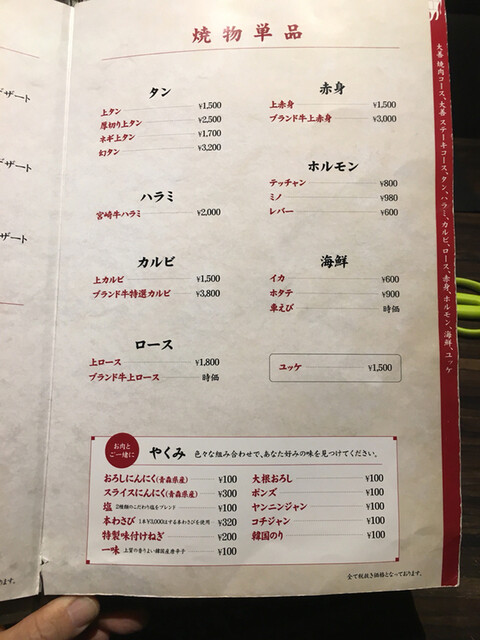 焼物単品
タン
上タン ¥1,500
厚切り上タン ¥2,500
ネギ上タン ¥1,700
幻タン ¥3,200
ハラミ
宮崎牛ハラミ ¥2,000
カルビ
上カルビ ¥1,500
ブランド牛特選カルビ ¥3,800
ロース
上ロース ¥1,800
ブランド牛上ロース 時価
赤身
上赤身 ¥1,500
ブランド牛上赤身 ¥3,000
ホルモン
テッチャン ¥800
ミノ ¥980
レバー ¥600
海鮮
イカ ¥600
ホタテ ¥900
車えび 時価
ユッケ ¥1,500
お肉と
ご一緒に
やくみ 色々な組み合わせで、あなた好みの味を見つけてください。
おろしにんにく(青森県産) ¥100
スライスにんにく(青森県産) ¥300
塩 2種類のこだわり塩をブレンド ¥100
本わさび 1本¥3,000以上する本わさびを使用 ¥320
特製味付けねぎ ¥200
一味 上質の香りよい韓国産唐辛子 ¥100
大根おろし ¥100
ポンズ ¥100
ヤンニンジャン ¥100
コチジャン ¥100
韓国のり ¥100
全て税抜き価格となっております。
大善 焼肉コース、大善 ステーキコース、タン、ハラミ、カルビ、ロース、赤身、ホルモン、海鮮、ユッケ
デザート
デザート
ザート